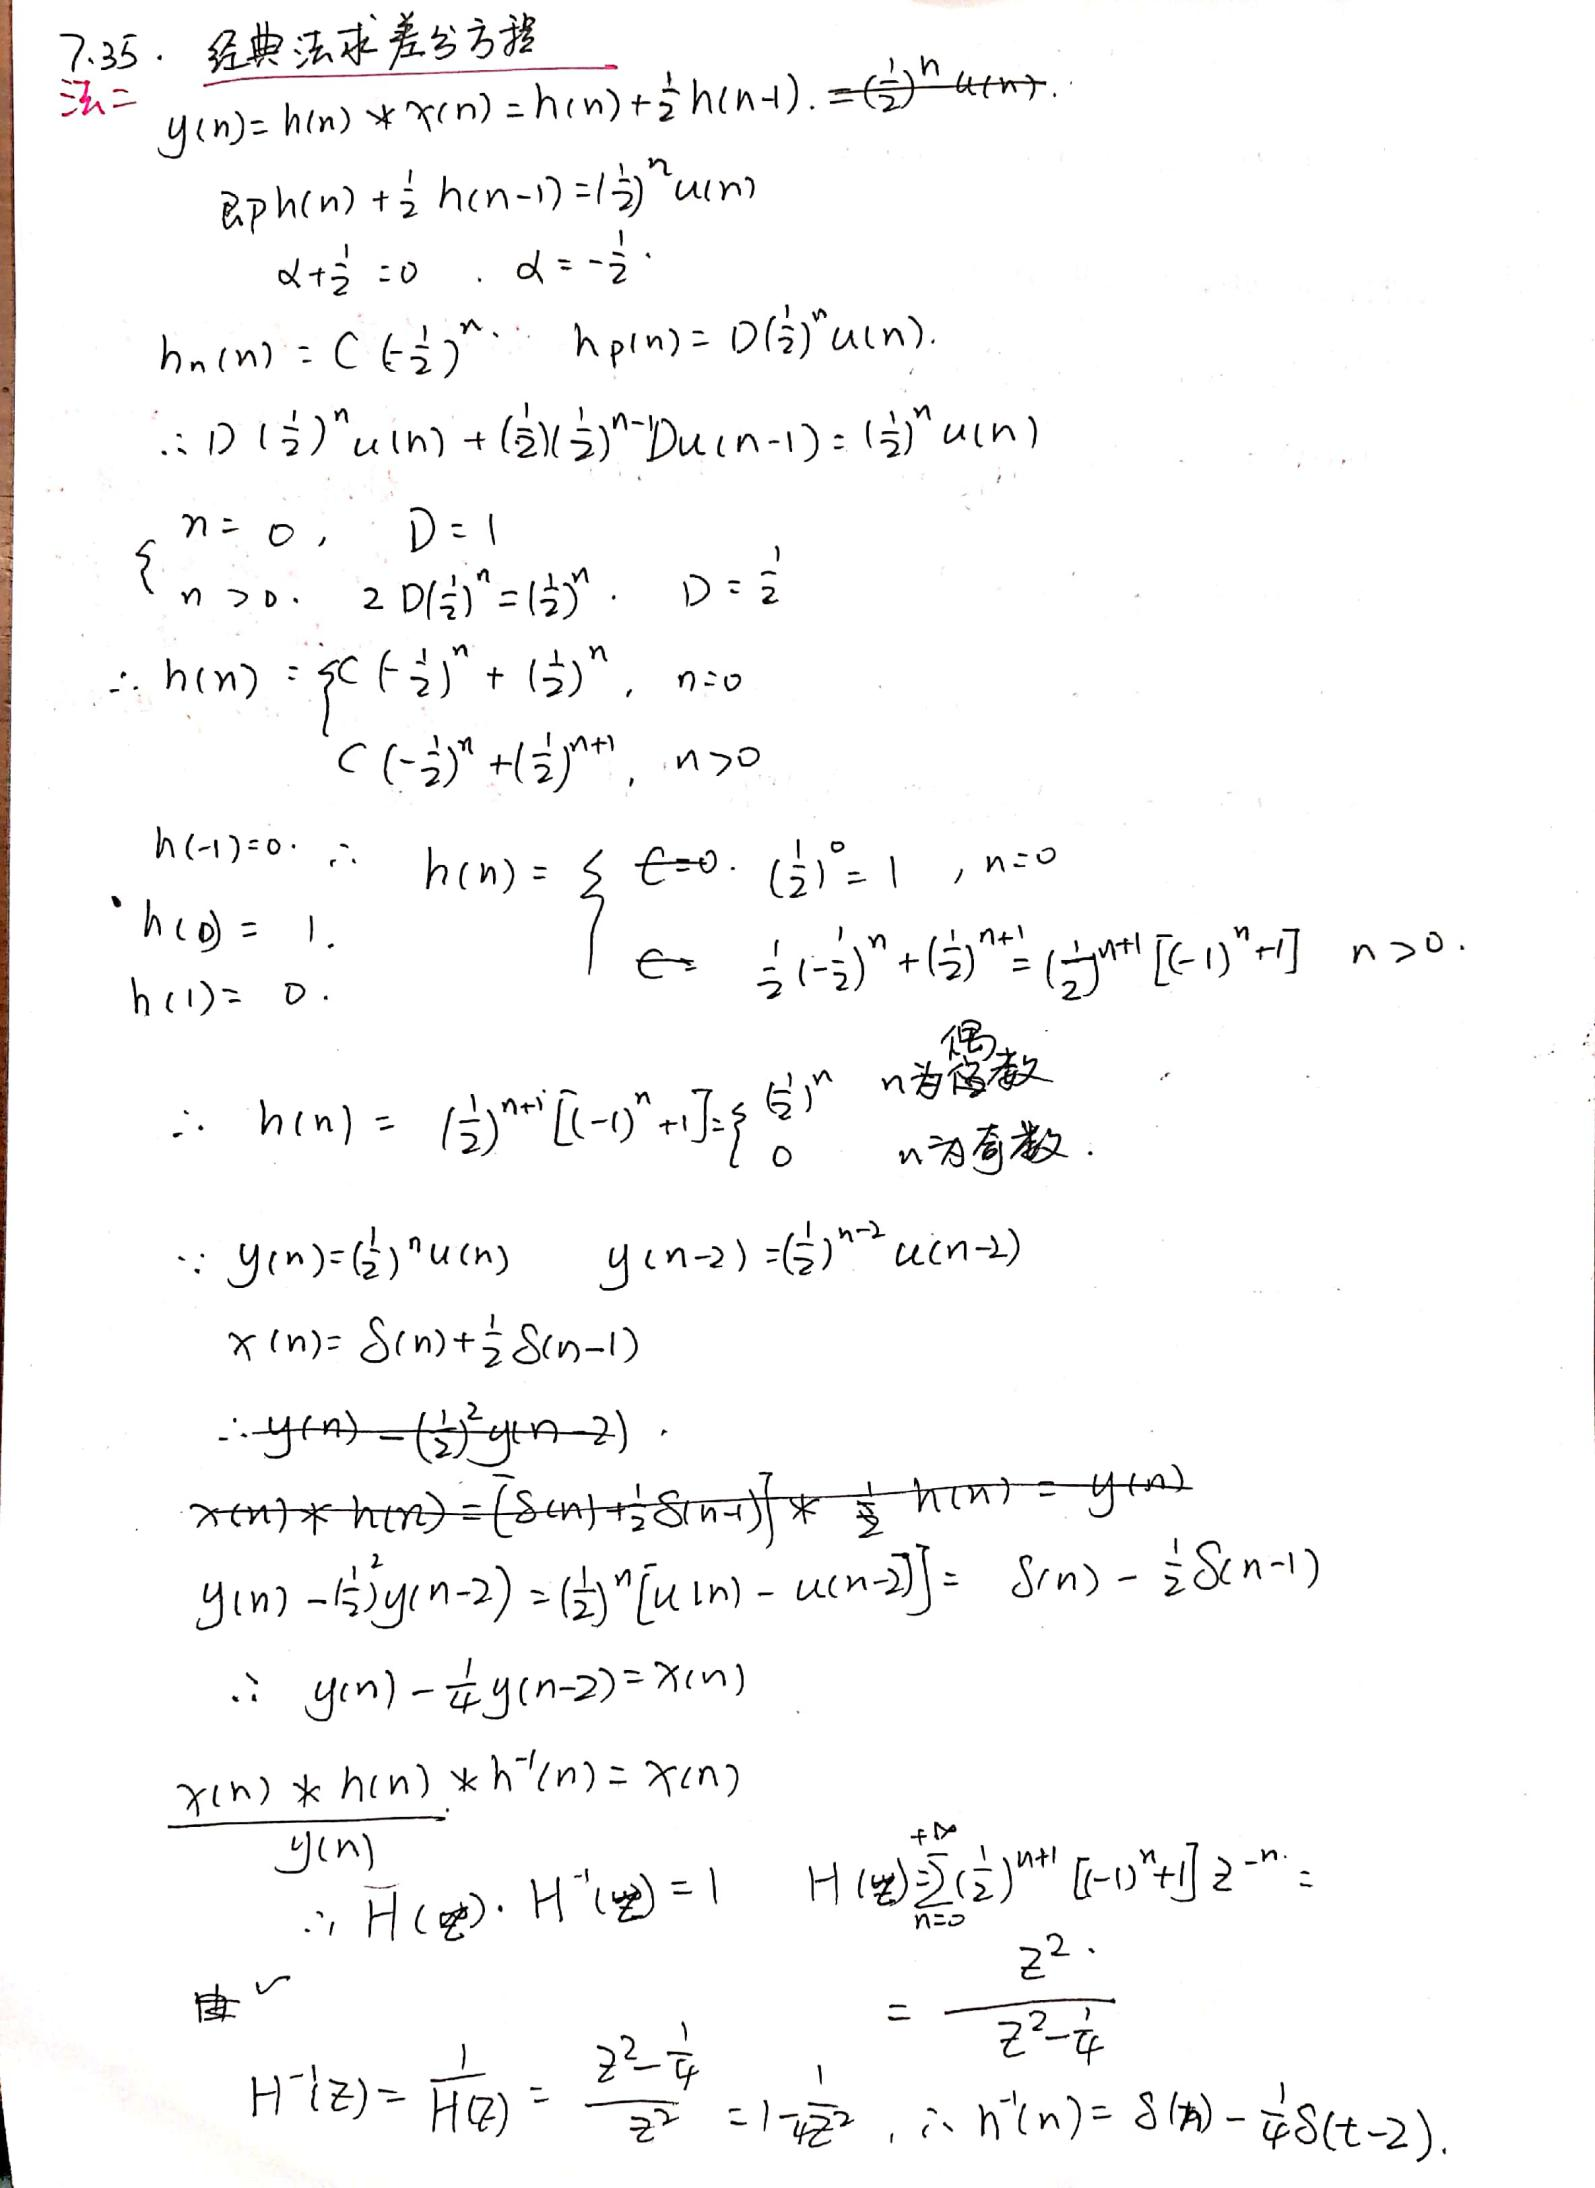 7.35. 经典法求差分方程
法二
y(n)=h(n)*x(n)=h(n)+½h(n-1). =(½)ⁿu(n).
即h(n)+½h(n-1)=(½)ⁿu(n)
α+½=0 . α=-½.
hₙ(n)=C(-½)ⁿ. hp(n)=D(½)ⁿu(n).
∴D(½)ⁿu(n)+(½)(½)ⁿ⁻¹Du(n-1)=(½)ⁿu(n)
{ n=0, D=1
n>0. 2D(½)ⁿ=(½)ⁿ. D=½
∴ h(n)={C(-½)ⁿ+(½)ⁿ, n=0
C(-½)ⁿ+(½)ⁿ⁺¹, n>0
h(-1)=0. ∴ h(n)={ C=0. (½)⁰=1, n=0
h(0)=1.
C= ½(-½)ⁿ+(½)ⁿ⁺¹=(½)ⁿ⁺¹[(-1)ⁿ+1] n>0.
h(1)=0.
∴ h(n)=(½)ⁿ⁺¹[(-1)ⁿ+1]={(½)ⁿ n为偶数
0 n为奇数.
∵ y(n)=(½)ⁿu(n) y(n-2)=(½)ⁿ⁻²u(n-2)
x(n)=δ(n)+½δ(n-1)
∴y(n)-(½)²y(n-2).
x(n)*h(n)=[δ(n)+½δ(n-1)]* h(n)=y(n)
y(n)-(½)²y(n-2)=(½)ⁿ[u(n)-u(n-2)]= δ(n)-½δ(n-1)
∴ y(n)-¼y(n-2)=x(n)
x(n)*h(n)*h⁻¹(n)=x(n)
y(n)
∴ H(z)·H⁻¹(z)=1 H(z)=∑ₙ₌₀⁺∞(½)ⁿ⁺¹[(-1)ⁿ+1]z⁻ⁿ.=
= z²/(z²-¼)
H⁻¹(z)=1/H(z)=(z²-¼)/z²=1-1/4z², ∴ h⁻¹(n)=δ(n)-¼δ(t-2).